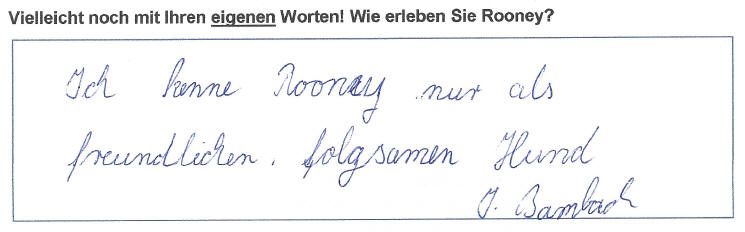 Vielleicht noch mit Ihren eigenen Worten! Wie erleben Sie Rooney?
Ich kenne Rooney nur als
freundlichen, folgsamen Hund
J. Bambach